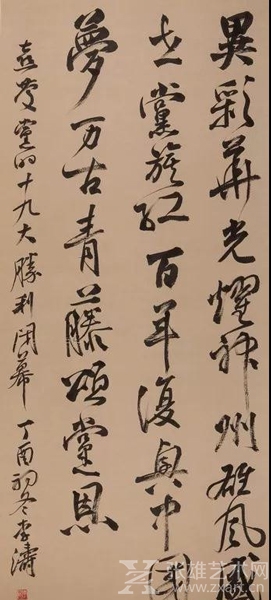 異彩華光耀神州雄風盛
世黨旗紅百年復興中國
夢万古青藤頌黨恩
喜慶黨的十九大勝利闭幕 丁酉初冬李濤
张雄艺术网